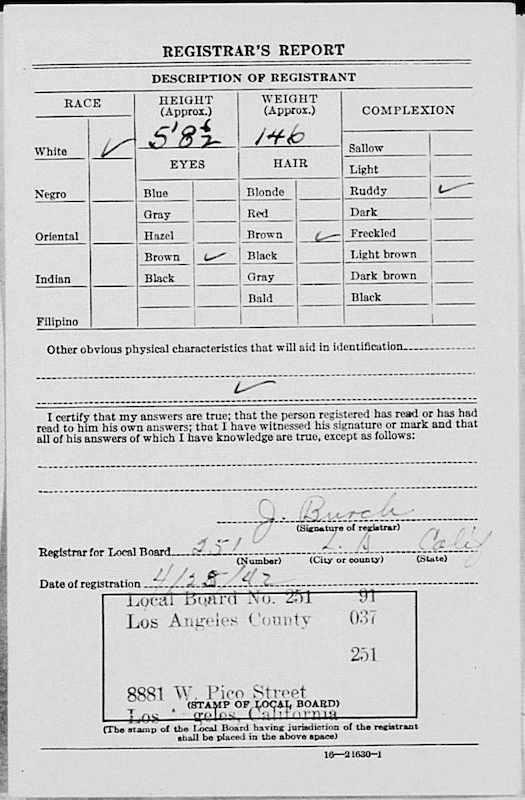 REGISTRAR'S REPORT
DESCRIPTION OF REGISTRANT
RACE
HEIGHT
(Approx.)
WEIGHT
(Approx.)
COMPLEXION
White ✓
5' 8 1/2
146
Sallow
EYES
HAIR
Light
Negro
Blue
Blonde
Ruddy ✓
Gray
Red
Dark
Oriental
Hazel
Brown ✓
Freckled
Brown ✓
Black
Light brown
Indian
Black
Gray
Dark brown
Bald
Black
Filipino
Other obvious physical characteristics that will aid in identification
✓
I certify that my answers are true; that the person registered has read or has had
read to him his own answers; that I have witnessed his signature or mark and that
all of his answers of which I have knowledge are true, except as follows:
J. Burch
(Signature of registrar)
Registrar for Local Board 251 L. A Calif
(Number) (City or county) (State)
Date of registration 4/25/42
Local Board No. 251 91
Los Angeles County 037
251
8881 W. Pico Street
(STAMP OF LOCAL BOARD)
Los geles, California
(The stamp of the Local Board having jurisdiction of the registrant
shall be placed in the above space)
16—21630-1